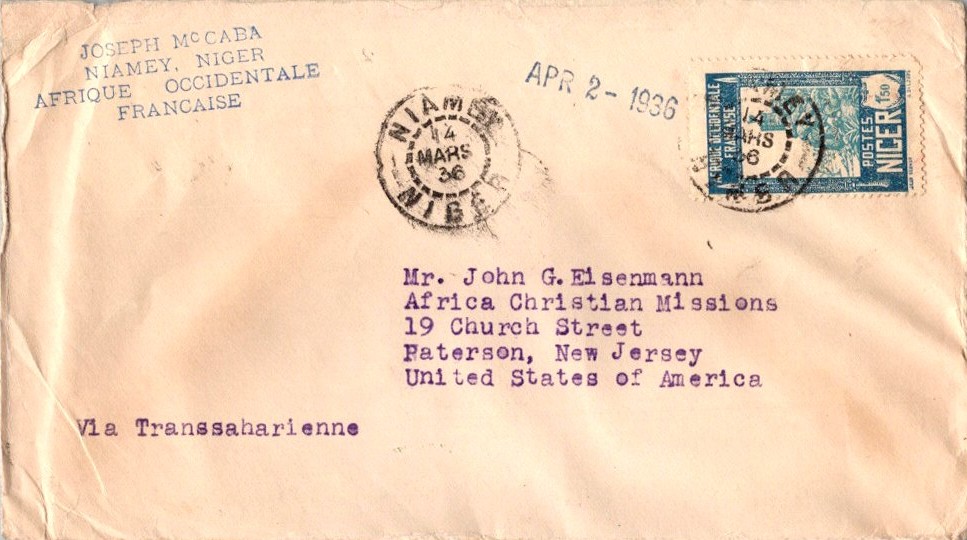 JOSEPH McCABA
NIAMEY, NIGER
AFRIQUE OCCIDENTALE
FRANCAISE
NIAMEY
14
MARS
36
NIGER
APR 2 - 1936
AFRIQUE OCCIDENTALE
FRANÇAISE
POSTES
NIGER
1F50
14
MARS
36
Mr. John G.Eisenmann
Africa Christian Missions
19 Church Street
Paterson, New Jersey
United States of America
Via Transsaharienne